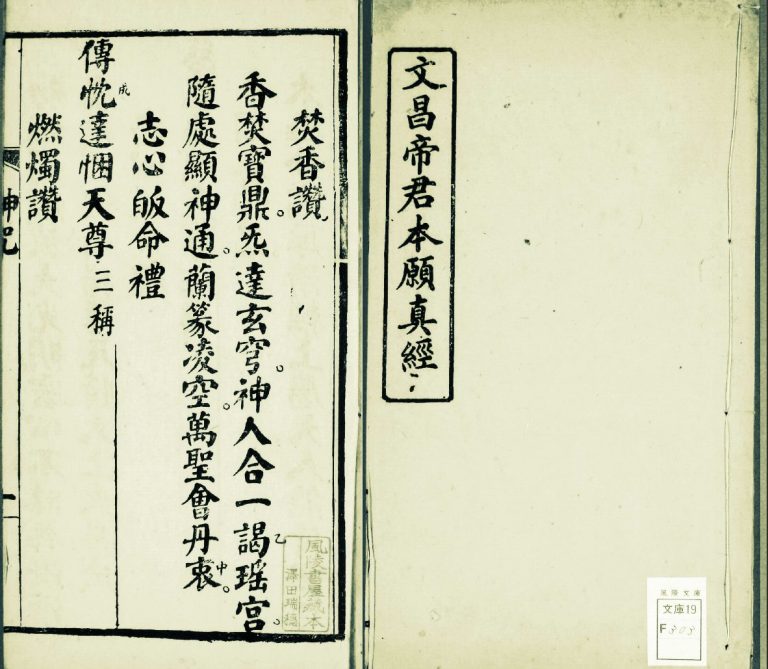 文昌帝君本願真經
焚香讚
香焚寶鼎。炁達玄穹。神人合一謁瑶宮。
乙
隨處顯神通。蘭篆凌空。萬聖會丹衷。
中
志心皈命禮
傳忱達悃天尊 三稱
成
燃燭讚
神咒
一
風陵書屋藏本
澤田瑞穗
風陵文庫
文庫19
F